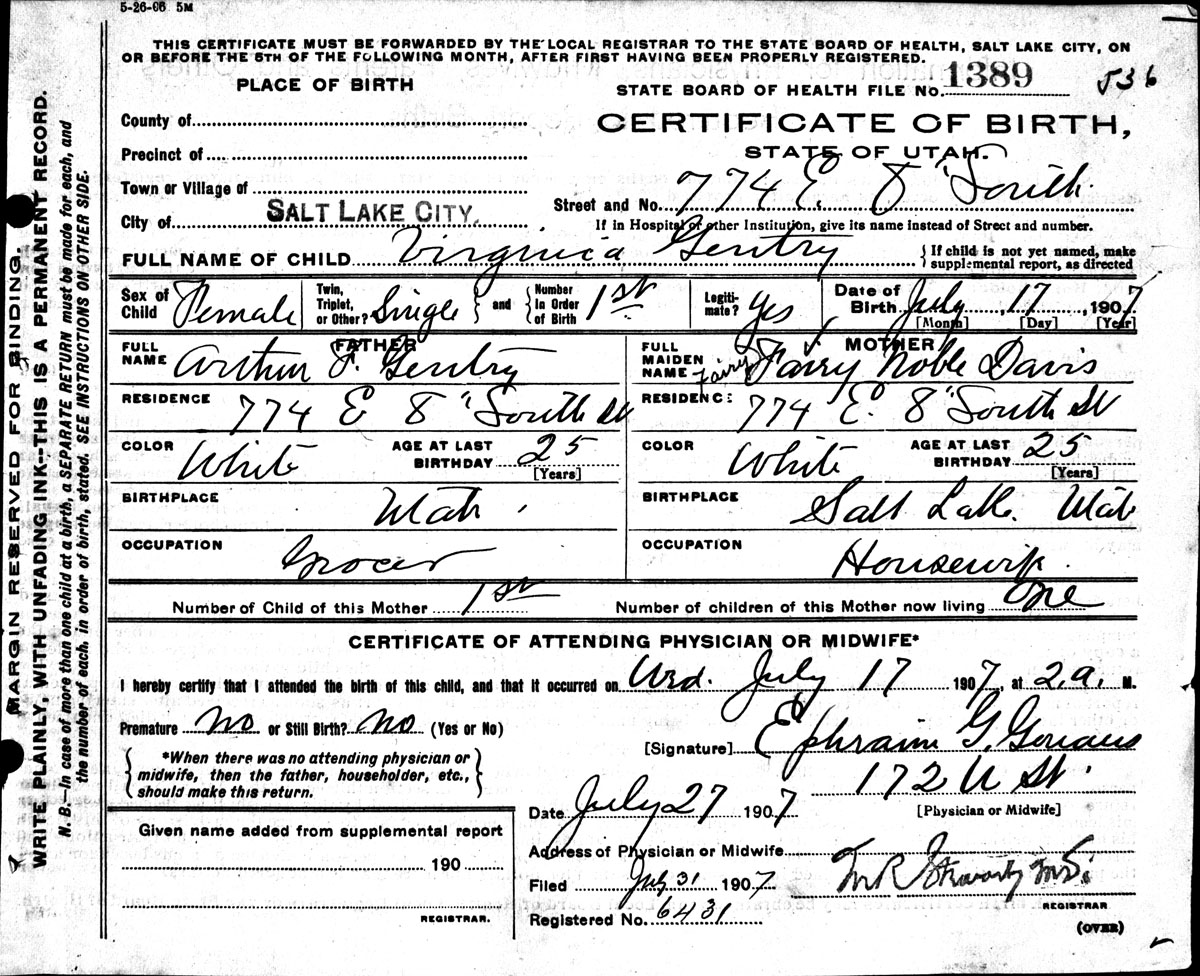 5-26-06 5M
THIS CERTIFICATE MUST BE FORWARDED BY THE LOCAL REGISTRAR TO THE STATE BOARD OF HEALTH, SALT LAKE CITY, ON
OR BEFORE THE 5TH OF THE FOLLOWING MONTH, AFTER FIRST HAVING BEEN PROPERLY REGISTERED.
PLACE OF BIRTH
STATE BOARD OF HEALTH FILE No. 1389 536
County of
CERTIFICATE OF BIRTH,
Precinct of
STATE OF UTAH.
Town or Village of
Street and No. 774 E. 8" South
City of SALT LAKE CITY.
If in Hospital or other Institution, give its name instead of Street and number.
FULL NAME OF CHILD Virginia Gentry { If child is not yet named, make
supplemental report, as directed
Sex of Child Female
Twin, Triplet, or Other? Single } and { Number in Order of Birth 1st
Legitimate? Yes
Date of Birth July, 17, 1907
[Month] [Day] [Year]
FATHER
FULL NAME Arthur F. Gentry
RESIDENCE 774 E 8" South St
COLOR White AGE AT LAST BIRTHDAY 25
[Years]
BIRTHPLACE Utah.
OCCUPATION Grocer
MOTHER
FULL MAIDEN NAME Fairy Fairy Noble Davis
RESIDENCE: 774 E. 8" South St
COLOR White AGE AT LAST BIRTHDAY 25
[Years]
BIRTHPLACE Salt Lake. Utah
OCCUPATION Housewife.
Number of Child of this Mother 1st Number of children of this Mother now living One
CERTIFICATE OF ATTENDING PHYSICIAN OR MIDWIFE*
I hereby certify that I attended the birth of this child, and that it occurred on Wed. July 17 1907, at 2. a. M.
Premature No or Still Birth? No (Yes or No)
[Signature] Ephraim G.
{ *When there was no attending physician or
midwife, then the father, householder, etc.,
should make this return. }
172 U St.
[Physician or Midwife]
Date July 27 1907
Address of Physician or Midwife
Given name added from supplemental report
190
REGISTRAR.
Filed July 31 1907
REGISTRAR
Registered No. 6431
(OVER)
MARGIN RESERVED FOR BINDING.
WRITE PLAINLY, WITH UNFADING INK--THIS IS A PERMANENT RECORD.
N. B.—In case of more than one child at a birth, a SEPARATE RETURN must be made for each, and
the number of each, in order of birth, stated. SEE INSTRUCTIONS ON OTHER SIDE.